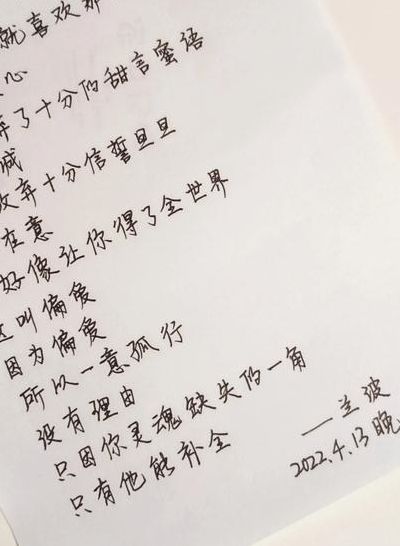 就喜欢那
心
弃了十分的甜言蜜语
诚
放弃十分信誓旦旦
在意
好像让你得了全世界
这叫偏爱
因为偏爱
所以一意孤行
没有理由
只因你灵魂缺失的一角
只有他能补全
——兰波
2022.4.13晚